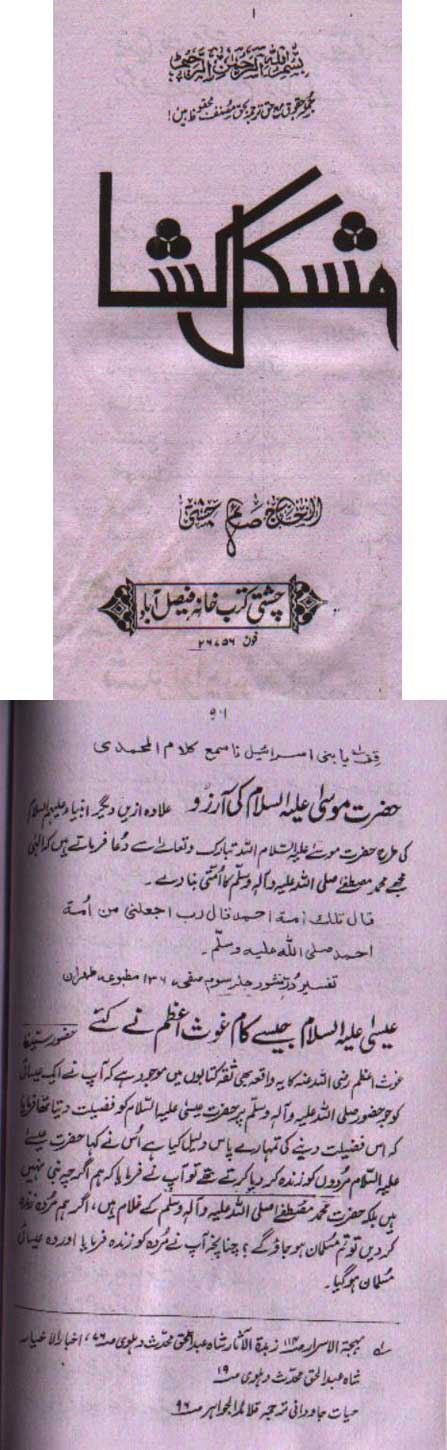 ۱
بسم اللہ الرحمٰن الرحیم
جملہ حقوق مع حق ترجمہ بحق مصنف محفوظ ہیں!
مشکل کشا
الحاج صائم چشتی
چشتی کتب خانہ فیصل آباد
فون ۲۶۷۵۶
۵۹
قف یا بنی اسرائیل فاسمع کلام المحمدی
حضرت موسیٰ علیہ السلام کی آرزو علاوہ ازیں دیگر انبیاء علیہم السلام
کی طرح حضرت موسےٰ علیہ السّلام اللہ تبارک وتعالےٰ سے دُعا فرماتے ہیں کہ الٰہی
مجھے محمد مصطفےٰ صلی اللہ علیہ وآلہ وسلّم کا اُمتی بنا دے۔
قال تلك امة احمد قال رب اجعلنی من اُمة
احمد صلی الله علیه وسلّم۔
تفسیر دُرّمنثور جلد سوم صفحہ ۱۳۶ مطبوعہ طہران
عیسیٰ علیہ السلام جیسے کام غوث اعظم نے کئے حضور سیدنا
غوث اعظم رضی اللہ عنہ کا یہ واقعہ بھی ثقہ کتابوں میں موجود ہے کہ آپ نے ایک عیسائی
کو جو حضور صلی اللہ علیہ وآلہ وسلّم پر حضرت عیسیٰ علیہ السّلام کو فضیلت دیتا تھا فرمایا
کہ اس فضیلت دینے کی تمہارے پاس دلیل کیا ہے اُس نے کہا حضرت عیسےٰ
علیہ السّلام مُردوں کو زندہ کر دیا کرتے تھے تو آپ نے فرمایا کہ ہم اگرچہ نبی نہیں
ہیں بلکہ حضرت محمد مصطفےٰ صلی اللہ علیہ وآلہ وسلم کے غلام ہیں، اگر ہم مُردہ زندہ
کر دیں تو تم مسلمان ہو جاؤ گے؟ چنانچہ آپ نے مُردہ کو زندہ فرمایا اور وہ عیسائی
مسلمان ہو گیا۔
بہجۃ الاسرار صـ۱۱۴ زبدۃ الآثار شاہ عبدالحق محدّث دہلوی صـ۷۶، اخبار الاخیار
شاہ عبدالحق محدّث دہلوی صـ۱۹
حیات جاودانی ترجمہ قلائد الجواہر صـ۹۶